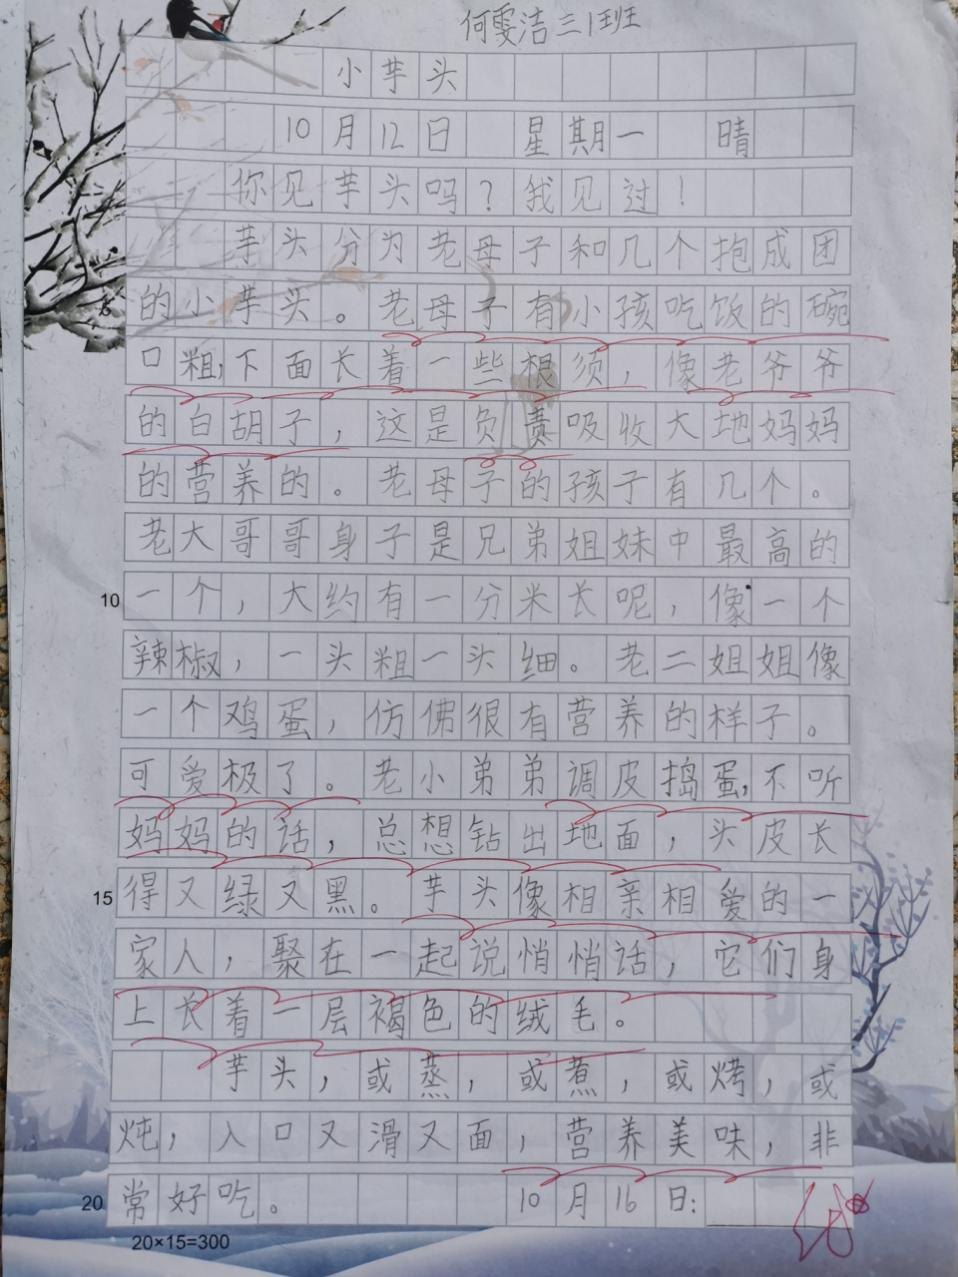 何雯洁三1班
小芋头
10月12日 星期一 晴
你见芋头吗？我见过！
芋头分为老母子和几个抱成团
的小芋头。老母子有小孩吃饭的碗
口粗，下面长着一些根须，像老爷爷
的白胡子，这是负责吸收大地妈妈
的营养的。老母子的孩子有几个。
老大哥哥身子是兄弟姐妹中最高的
10 一个，大约有一分米长呢，像一个
辣椒，一头粗一头细。老二姐姐像
一个鸡蛋，仿佛很有营养的样子。
可爱极了。老小弟弟调皮捣蛋，不听
妈妈的话，总想钻出地面，头皮长
15 得又绿又黑。芋头像相亲相爱的一
家人，聚在一起说悄悄话，它们身
上长着一层褐色的绒毛。
芋头，或蒸，或煮，或烤，或
炖，入口又滑又面，营养美味，非
20 常好吃。 10月16日：
20×15=300